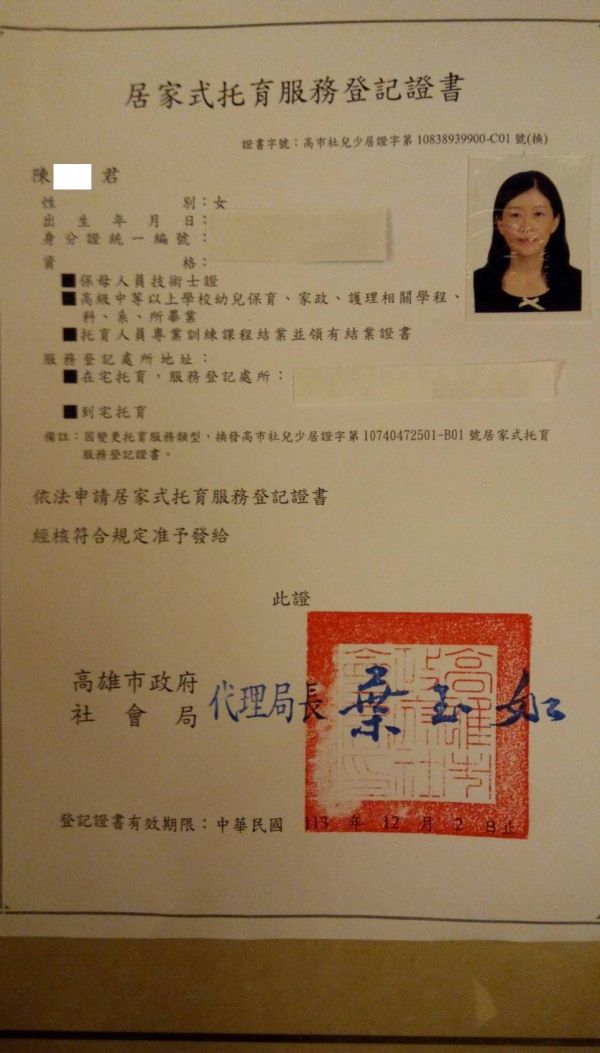 居家式托育服務登記證書
證書字號：高市社兒少居證字第10838939900-C01號(換)
陳 君
性別：女
出生年月日：
身分證統一編號：
資格：
■保母人員技術士證
■高級中等以上學校幼兒保育、家政、護理相關學程、
科、系、所畢業
■托育人員專業訓練課程結業並領有結業證書
服務登記處所地址：
■在宅托育，服務登記處所：
■到宅托育
備註：因變更托育服務類型，換發高市社兒少居證字第10740472501-B01號居家式托育
服務登記證書。
依法申請居家式托育服務登記證書
經核符合規定准予發給
此證
高雄市政府
社會局
代理局長 葉玉如
登記證書有效期限：中華民國 113 年 12 月 2 日止